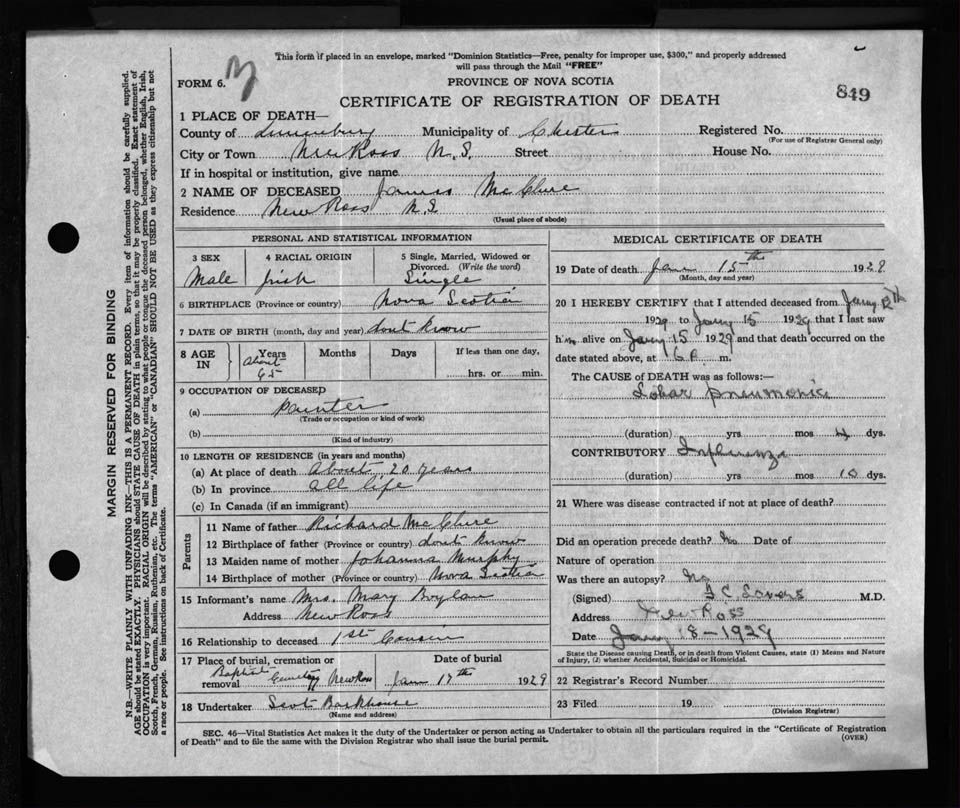 This form if placed in an envelope, marked "Dominion Statistics—Free, penalty for improper use, $300," and properly addressed
will pass through the Mail "FREE"
FORM 6.
PROVINCE OF NOVA SCOTIA
CERTIFICATE OF REGISTRATION OF DEATH
849
1 PLACE OF DEATH—
County of Lunenburg Municipality of Chester Registered No.
(For use of Registrar General only)
City or Town New Ross N.S. Street House No.
If in hospital or institution, give name
2 NAME OF DECEASED James McClure
Residence New Ross N.S.
(Usual place of abode)
PERSONAL AND STATISTICAL INFORMATION
3 SEX Male
4 RACIAL ORIGIN Irish
5 Single, Married, Widowed or Divorced. (Write the word) Single
6 BIRTHPLACE (Province or country) Nova Scotia
7 DATE OF BIRTH (month, day and year) dont know
8 AGE IN Years About 65 Months Days If less than one day, hrs. or min.
9 OCCUPATION OF DECEASED
(a) painter
(Trade or occupation or kind of work)
(b)
(Kind of industry)
10 LENGTH OF RESIDENCE (in years and months)
(a) At place of death About 20 years
(b) In province all life
(c) In Canada (if an immigrant)
Parents
11 Name of father Richard McClure
12 Birthplace of father (Province or country) dont know
13 Maiden name of mother Johanna Murphy
14 Birthplace of mother (Province or country) Nova Scotia
15 Informant's name Mrs. Mary Boylan
Address New Ross
16 Relationship to deceased 1st Cousin
17 Place of burial, cremation or removal Baptist Cemetery New Ross
Date of burial Jan 17th 1929
18 Undertaker Scot Barkhouse
(Name and address)
MEDICAL CERTIFICATE OF DEATH
19 Date of death Jan 15th 1929
(Month, day and year)
20 I HEREBY CERTIFY that I attended deceased from Jany 12th
1929 to Jany 15 1929 that I last saw
him alive on Jany 15 1929 and that death occurred on the
date stated above, at 6 P. m.
The CAUSE of DEATH was as follows:—
Lobar pneumonia
(duration) yrs mos 4 dys.
CONTRIBUTORY Influenza
(duration) yrs mos 10 dys.
21 Where was disease contracted if not at place of death?
Did an operation precede death? No Date of
Nature of operation
Was there an autopsy? No
(Signed) M.D.
Address New Ross
Date Jany 18-1929
State the Disease causing Death, or in death from Violent Causes, state (1) Means and Nature
of Injury, (2) whether Accidental, Suicidal or Homicidal.
22 Registrar's Record Number
23 Filed 19
(Division Registrar)
SEC. 46—Vital Statistics Act makes it the duty of the Undertaker or person acting as Undertaker to obtain all the particulars required in the "Certificate of Registration
of Death" and to file the same with the Division Registrar who shall issue the burial permit.
(OVER)
MARGIN RESERVED FOR BINDING
N.B.—WRITE PLAINLY WITH UNFADING INK—THIS IS A PERMANENT RECORD. Every item of information should be carefully supplied.
AGE should be stated EXACTLY. PHYSICIANS should STATE CAUSE OF DEATH in plain terms, so that it may be properly classified. Exact statement of
OCCUPATION is very important. RACIAL ORIGIN will be described by stating to what people or tongue the deceased person belonged, whether English, Irish,
Scotch, French, German, Russian, Ruthenian, etc. The terms "AMERICAN" or "CANADIAN" SHOULD NOT BE USED as they express citizenship but not
a race or people. See instructions on back of Certificate.